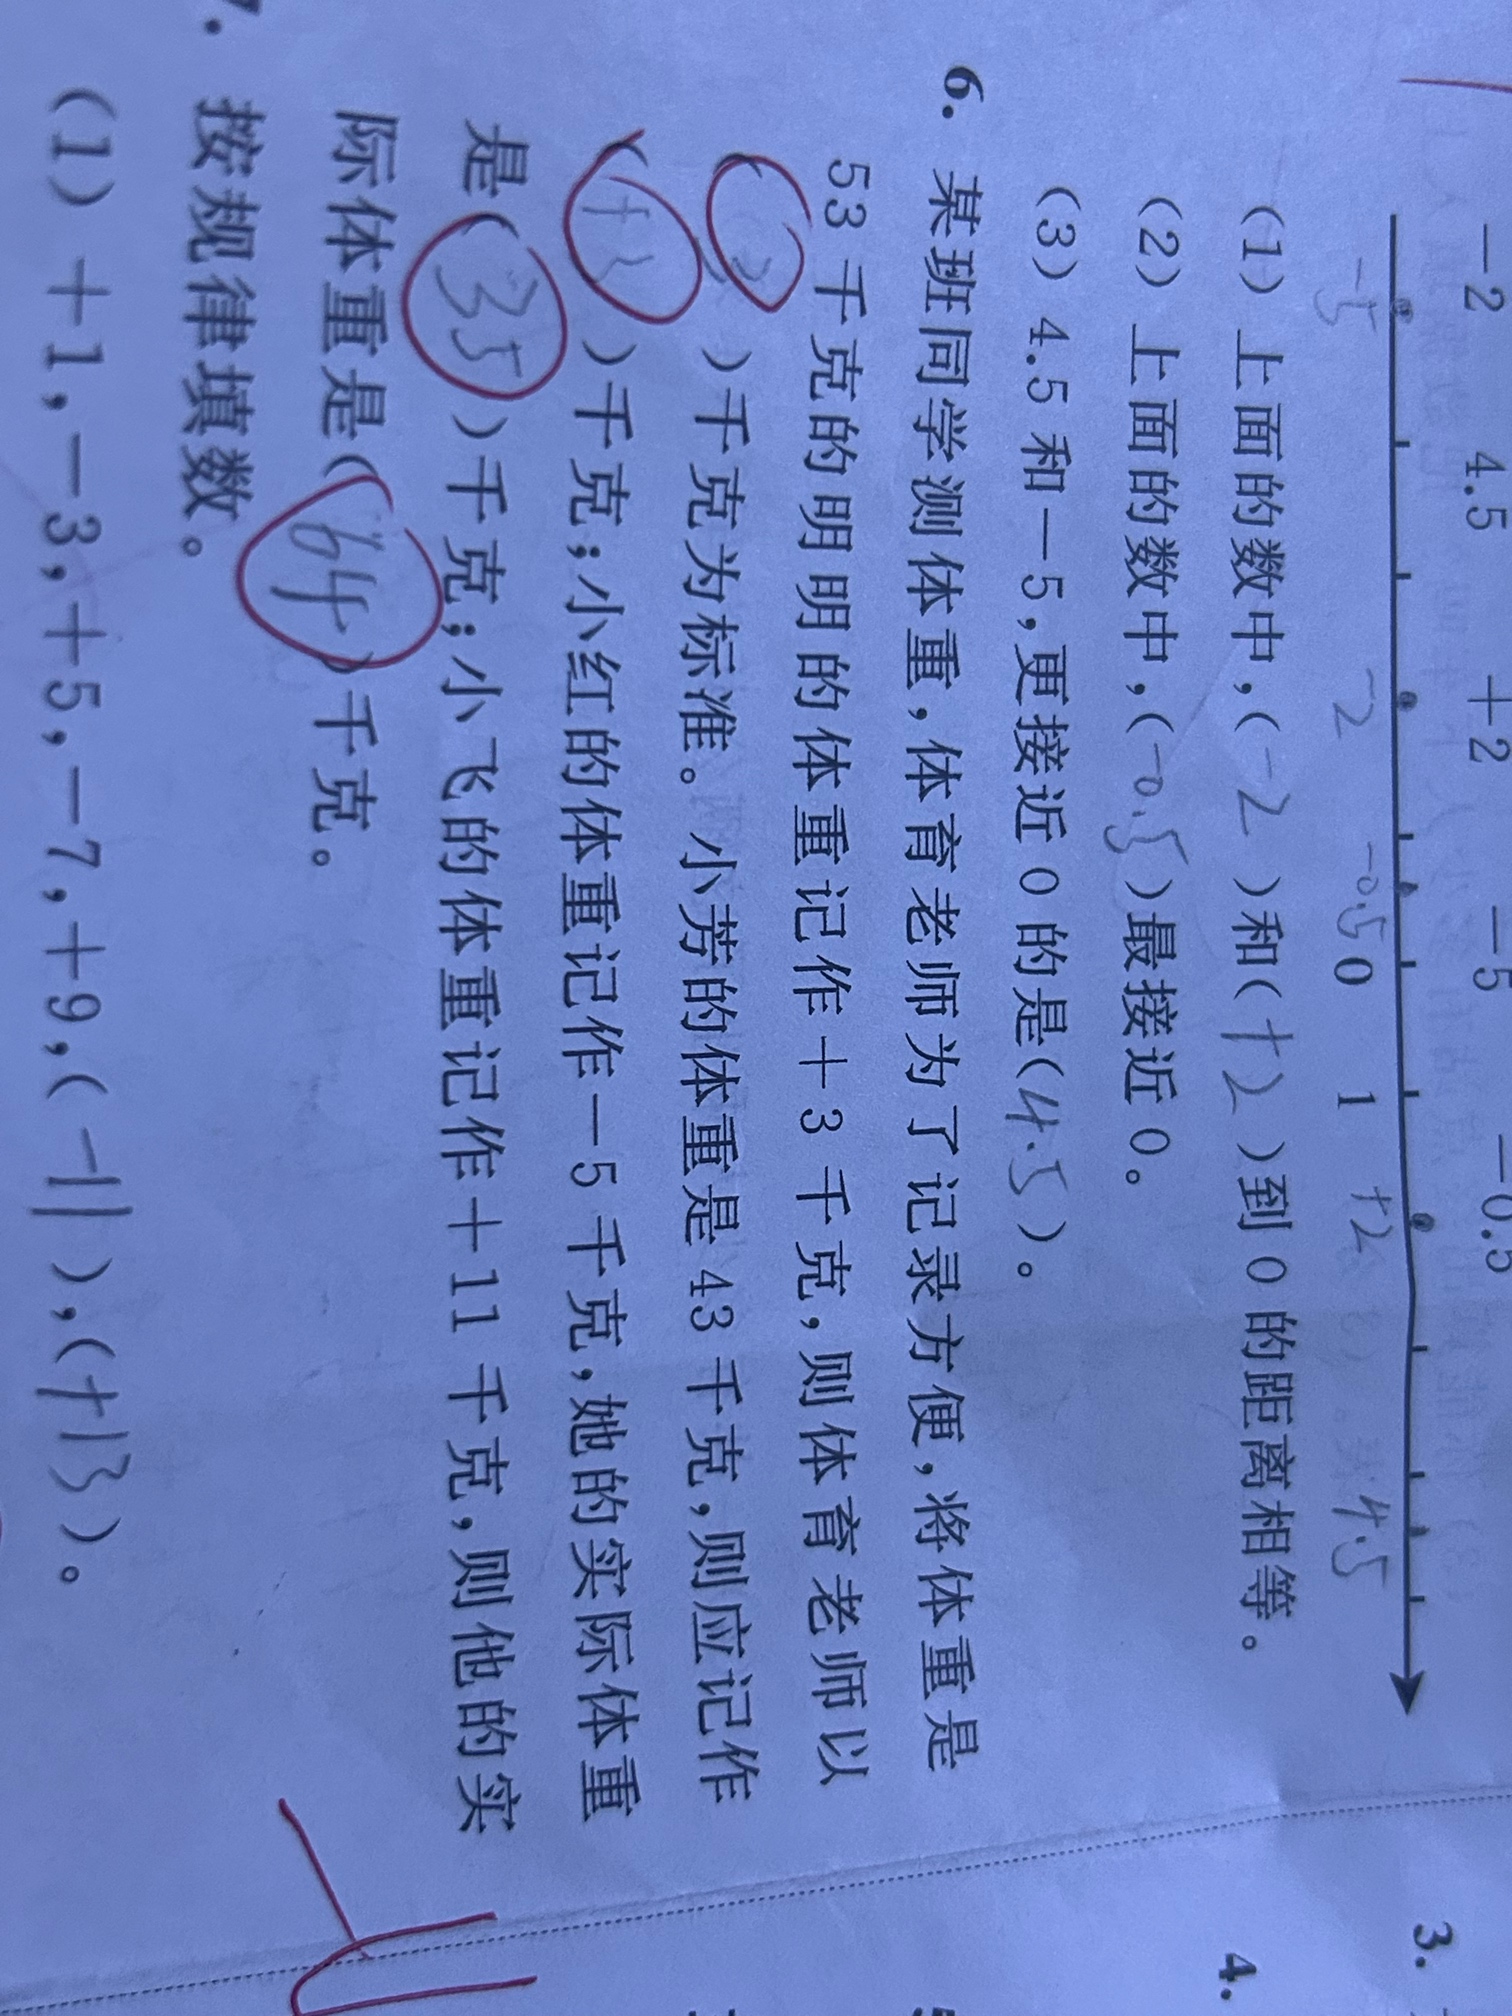 -2 4.5 +2 -5 -0.5
-5 -2 -0.5 0 1 +2 4.5
(1)上面的数中,(-2)和(+2)到0的距离相等。
(2)上面的数中,(-0.5)最接近0。
(3)4.5和-5,更接近0的是(4.5)。
6. 某班同学测体重,体育老师为了记录方便,将体重是
53千克的明明的体重记作+3千克,则体育老师以
( )千克为标准。小芳的体重是43千克,则应记作
( )千克;小红的体重记作-5千克,她的实际体重
是(35)千克;小飞的体重记作+11千克,则他的实
际体重是(64)千克。
7. 按规律填数。
(1)+1,-3,+5,-7,+9,(-11),(+13)。
3.
4.